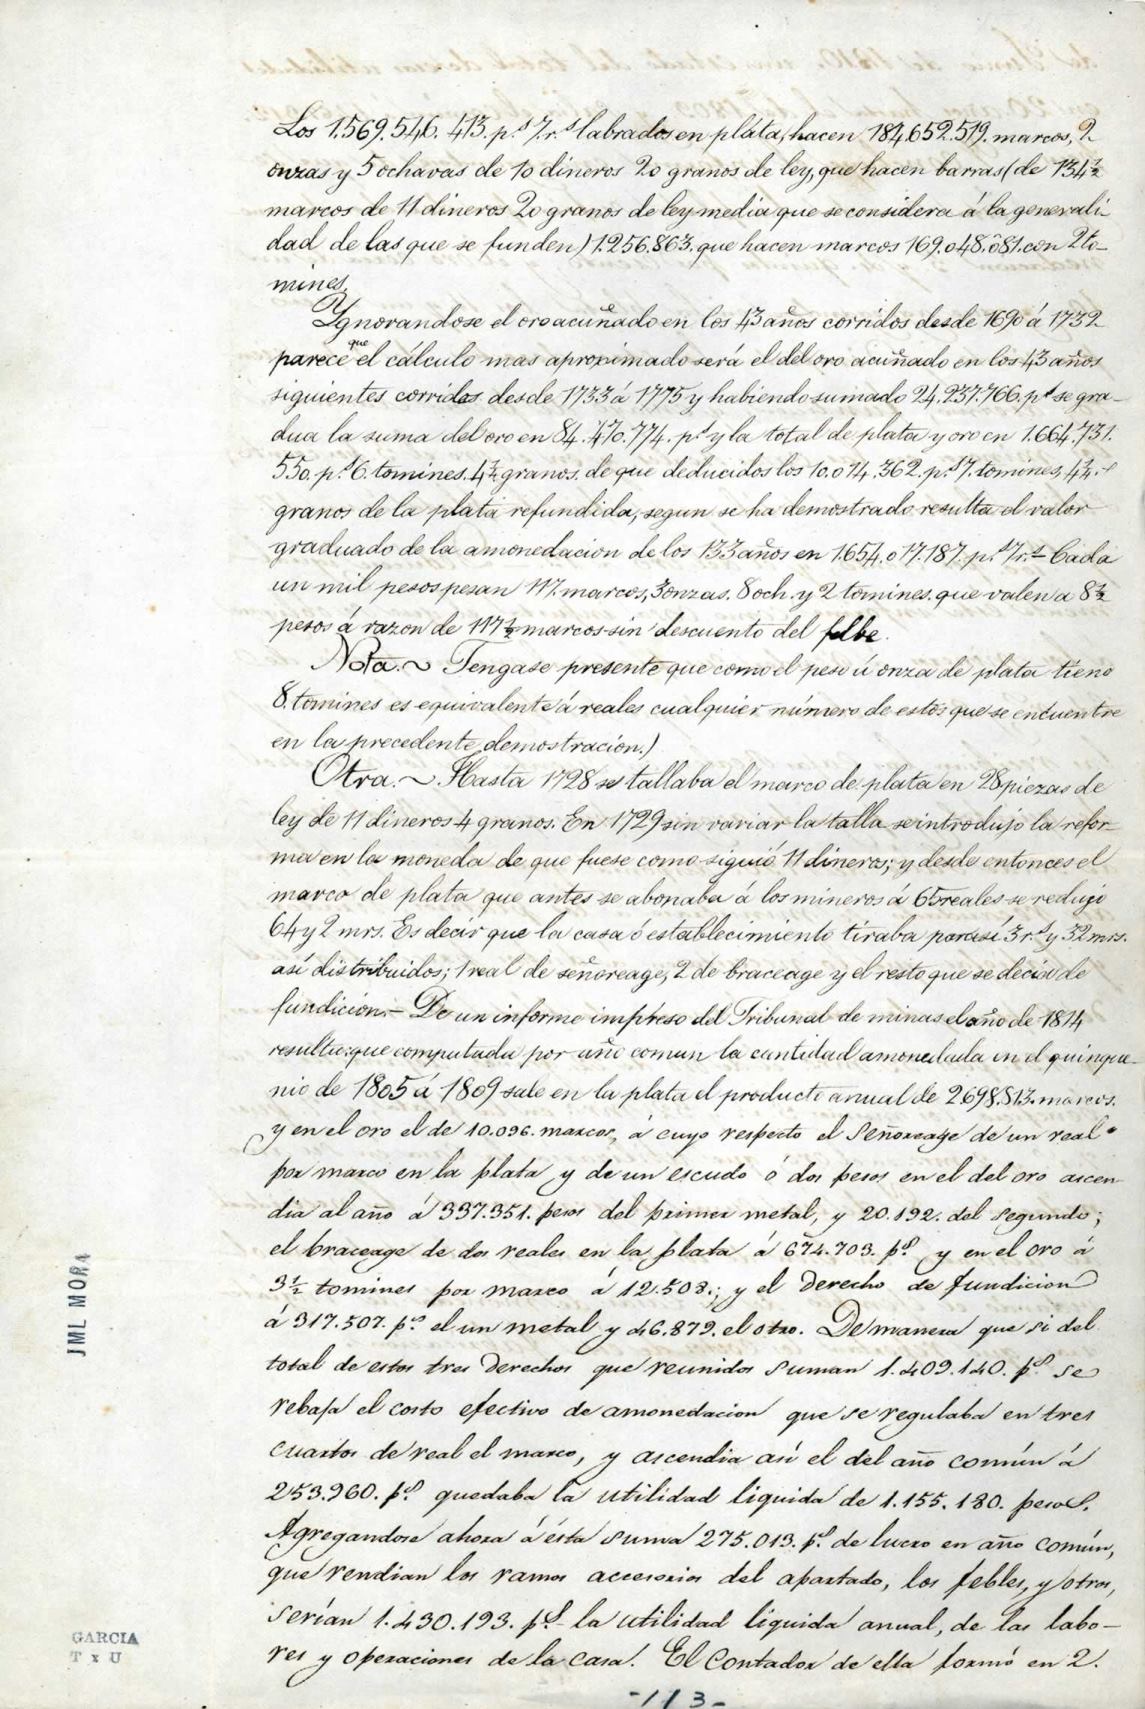 Los 1.569.546.413. p.s 7. r.s labrados en plata, hacen 184.652.519. marcos, 2
onzas y 5 ochavas de 10 dineros 20 granos de ley, que hacen barras (de 134½
marcos de 11 dineros 20 granos de ley media que se considera á la generali-
dad de las que se funden) 1.256.863. que hacen marcos 169.048.081. con 2 to-
mines.
Ygnorandose el oro acuñado en los 43 años corridos desde 1690 á 1732
parece que el cálculo mas aproximado será el del oro acuñado en los 43 años
siguientes corridos desde 1733 á 1775 y habiendo sumado 24.237.766. p.s se gra-
dua la suma del oro en 84.470.774. p.s y la total de plata y oro en 1.664.731.
550. p.s 6. tomines. 4½ granos. de que deducidos los 10.014.362. p.s 7. tomines, 4½
granos de la plata refundida, segun se ha demostrado resulta el valor
graduado de la amonedacion de los 133 años en 1.654.017.187. p.s 7 r.s Cada
un mil pesos pesan 117. marcos, 3 onzas. 8 och. y 2 tomines. que valen a 8½
pesos á razon de 117½ marcos sin descuento del feble.
Nota.~ Tengase presente que como el peso ú onza de plata tiene
8. tomines es equivalente á reales cualquier número de estos que se encuentre
en la precedente demostracion.)
Otra.~ Hasta 1728 se tallaba el marco de plata en 28 piezas de
ley de 11 dineros 4 granos. En 1729 sin variar la talla se introdujo la refor-
ma en la moneda de que fuese como siguió 11 dineros; y desde entonces el
marco de plata que antes se abonaba á los mineros á 65 reales se redujo
64 y 2 mrs. Es decir que la casa ó establecimiento tiraba para sí 3 r.s y 32 mrs.
así distribuidos; 1 real de señoreage, 2 de braceage y el resto que se decia de
fundicion.- De un informe impreso del Tribunal de minas el año de 1814
resulta: que computada por año comun la cantidad amonedada en el quinque-
nio de 1805 á 1809 sale en la plata el producto anual de 2.698.813. marcos.
y en el oro el de 10.096. marcos, á cuyo respecto el Señoreage de un real
por marco en la plata y de un escudo ó dos pesos en el del oro ascen-
dia al año á 337.351. pesos del primer metal, y 20.192. del segundo;
el braceage de dos reales en la plata á 674.703. p.s y en el oro á
3½ tomines por marco á 12.508.; y el derecho de fundicion
á 317.507. p.s el un metal y 46.879. el otro. De manera que si del
total de estos tres derechos que reunidos suman 1.409.140. p.s se
rebaja el costo efectivo de amonedacion que se regulaba en tres
cuartos de real el marco, y ascendia así el del año común á
253.960. p.s quedaba la utilidad liquida de 1.155.180. pesos.
Agregandose ahora á ésta suma 275.013. p.s de lucro en año común,
que rendian los ramos accesorios del apartado, los febles, y otros,
serían 1.430.193. p.s la utilidad liquida anual, de las labo-
res y operaciones de la casa. El Contador de ella formó en 2.
-113-
JML MORA
GARCIA
T x U